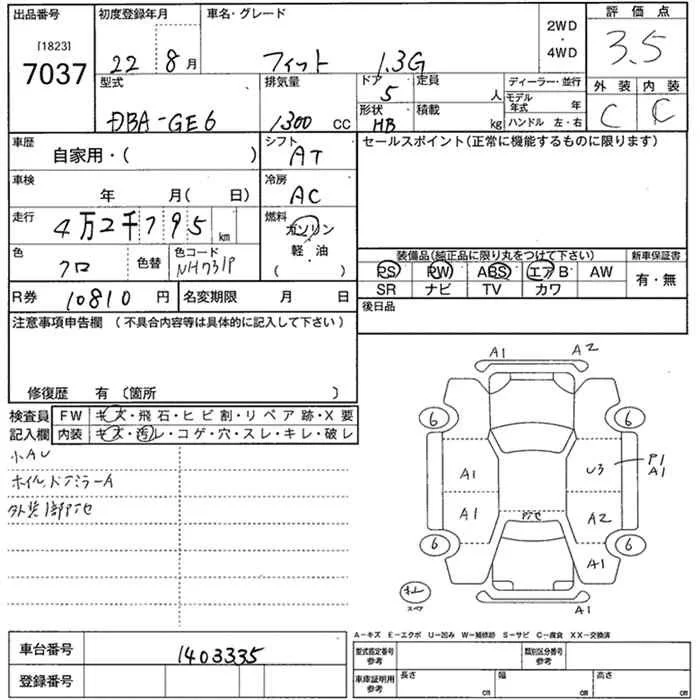 出品番号 初度登録年月 車名・グレード 2WD・4WD 評価点
[1823]
7037
22 8月 フィット 1.3G 3.5
型式 排気量 ドア 定員 ディーラー・並行 外装 内装
5 人 モデル年式 年
DBA-GE6 1300 CC 形状 積載 C C
HB kg ハンドル 左・右
車歴 シフト セールスポイント(正常に機能するものに限ります)
自家用・( ) AT
車検 冷房
年 月(日) AC
走行 燃料
4万2千795km ガソリン
軽・油
( )
色 色替 色コード
クロ NH731P
装備品(純正品に限り丸をつけて下さい) 新車保証書
PS PW ABS エアB AW 有・無
SR ナビ TV カワ
R券 10810円 名変期限 月 日 後日品
注意事項申告欄 (不具合内容等は具体的に記入して下さい)
修復歴 有 〔箇所 〕
検査員 FW キズ・飛石・ヒビ割・リペア跡・X要
記入欄 内装 キズ・汚レ・コゲ・穴・スレ・キレ・破レ
小AU
ホイル、ドアミラーA
A1 A2
6 6
A1 U3 P1
A1
A1 A2
6 6
A1
A1
スペア
A-キズ E-エクボ U-凹み W-補修跡 S-サビ C-腐食 XX-交換済
車台番号 1403335
登録番号
型式指定番号 参考 類別区分番号 参考
車庫証明用 参考 長さ cm 幅 cm 高さ cm